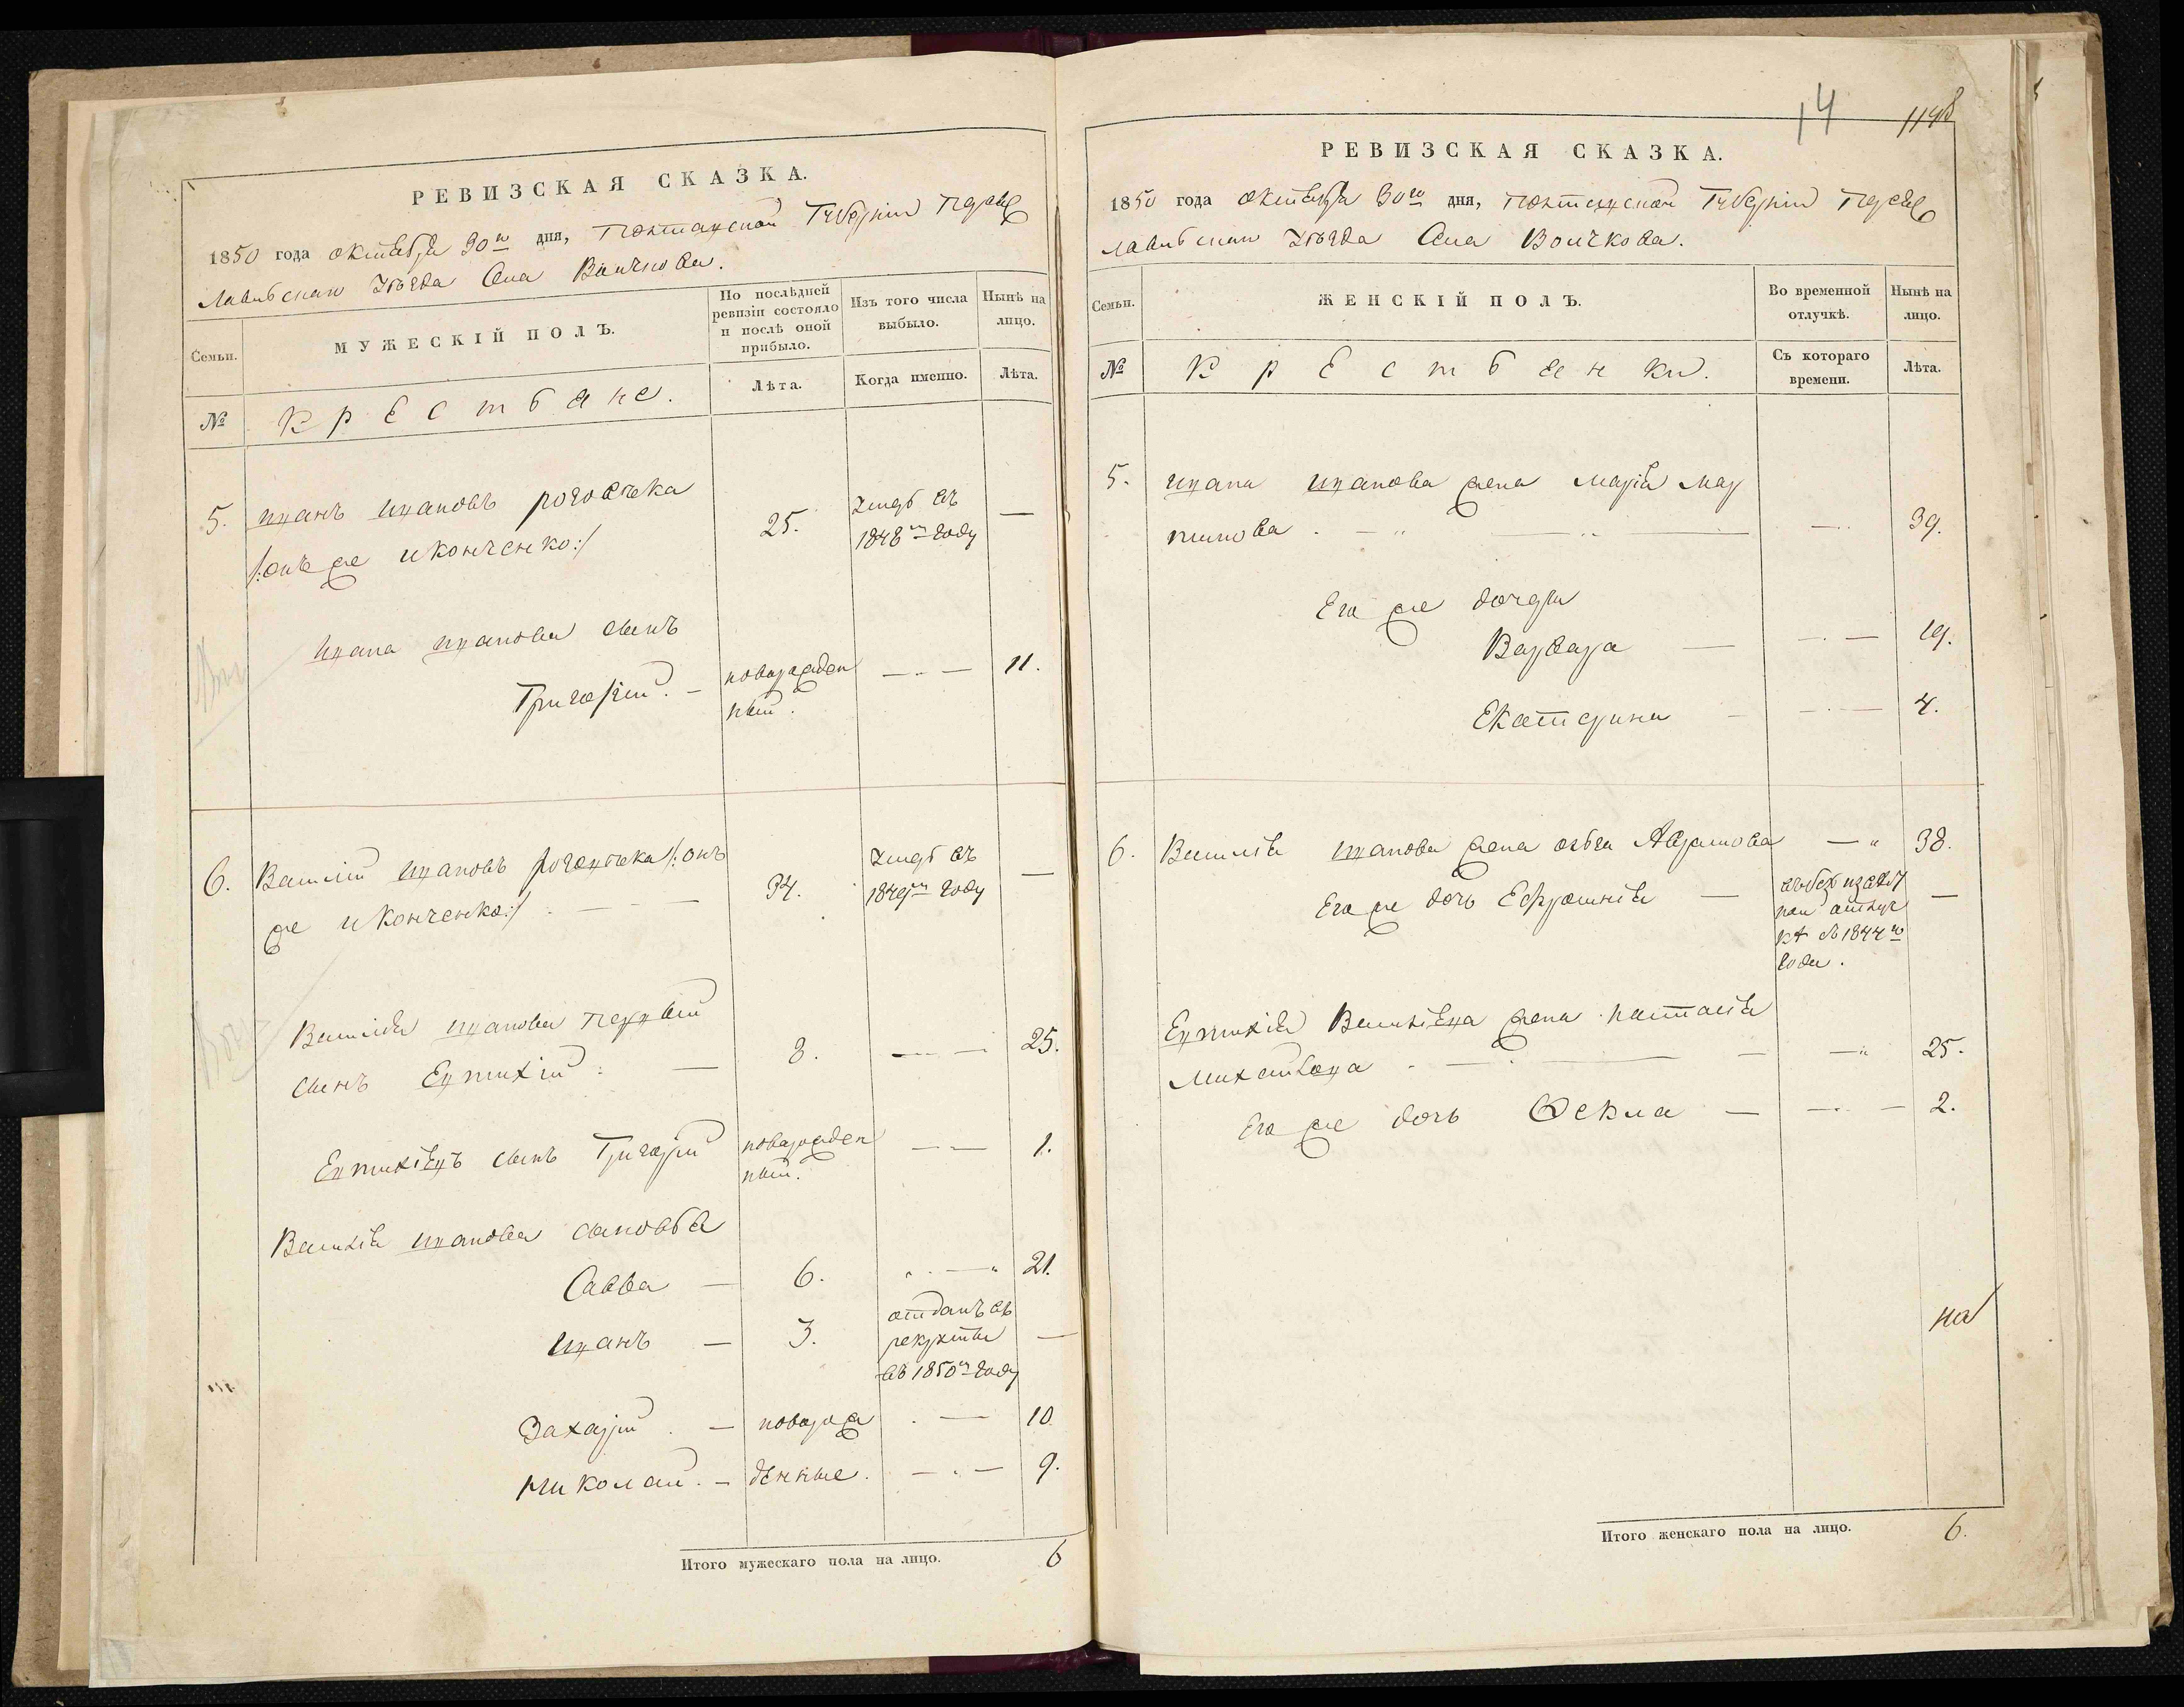 РЕВИЗСКАЯ СКАЗКА.
1850 года октября 30го дня, Полтавской Губерніи Переяс
лавскаго уѣзда Села Волчкова.
Семьи.
МУЖЕСКІЙ ПОЛЪ.
По послѣдней ревизіи состояло и послѣ оной прибыло.
Изъ того числа выбыло.
Нынѣ на лицо.
№
Крестьяне.
Лѣта.
Когда именно.
Лѣта.
5. Иванъ Ивановъ 25. умеръ въ —
/:онъ же Иконченко:/ 1848м году
Ивана Иванова сынъ
Григорій. — новорожден — „ — 11.
ный.
6. Василій Ивановъ /:онъ 34. умеръ въ —
же Иконченко:/ . — — — 1849м году
Василія Иванова первый
сынъ Евтихій . — 8. — — 25.
Евтихіевъ сынъ Григорій новорожден — — 1.
ный.
Василія Иванова сыновья
Савва — 6. „ — „ 21.
Иванъ — 3. отданъ въ —
рекруты
въ 1850м году
Захарій . — новорож . — 10.
Николай . — денные . — „ — 9.
Итого мужескаго пола на лицо. 6
14
РЕВИЗСКАЯ СКАЗКА.
1850 года октября 30го дня, Полтавской Губерніи Переяс
лавскаго уѣзда Села Волчкова.
Семьи.
ЖЕНСКІЙ ПОЛЪ.
Во временной отлучкѣ.
Нынѣ на лицо.
№
Крестьянки.
Съ котораго времени.
Лѣта.
5. Ивана Иванова жена Марія Мар
тинова . — „ — „ — — „ 39.
Его же дочери
Варвара — — „ — 19.
Екатерина — — „ — 4.
6. Василія Иванова жена Абрамова — „ 38.
Его же дочь Ефросинія — —
отлуч
кѣ съ 1844го
года .
Евтихія Васильева жена Настасія
Михайлова . — . — — — „ 25.
Его же дочь Ѳекла — — „ — 2.
на
Итого женскаго пола на лицо. 6.